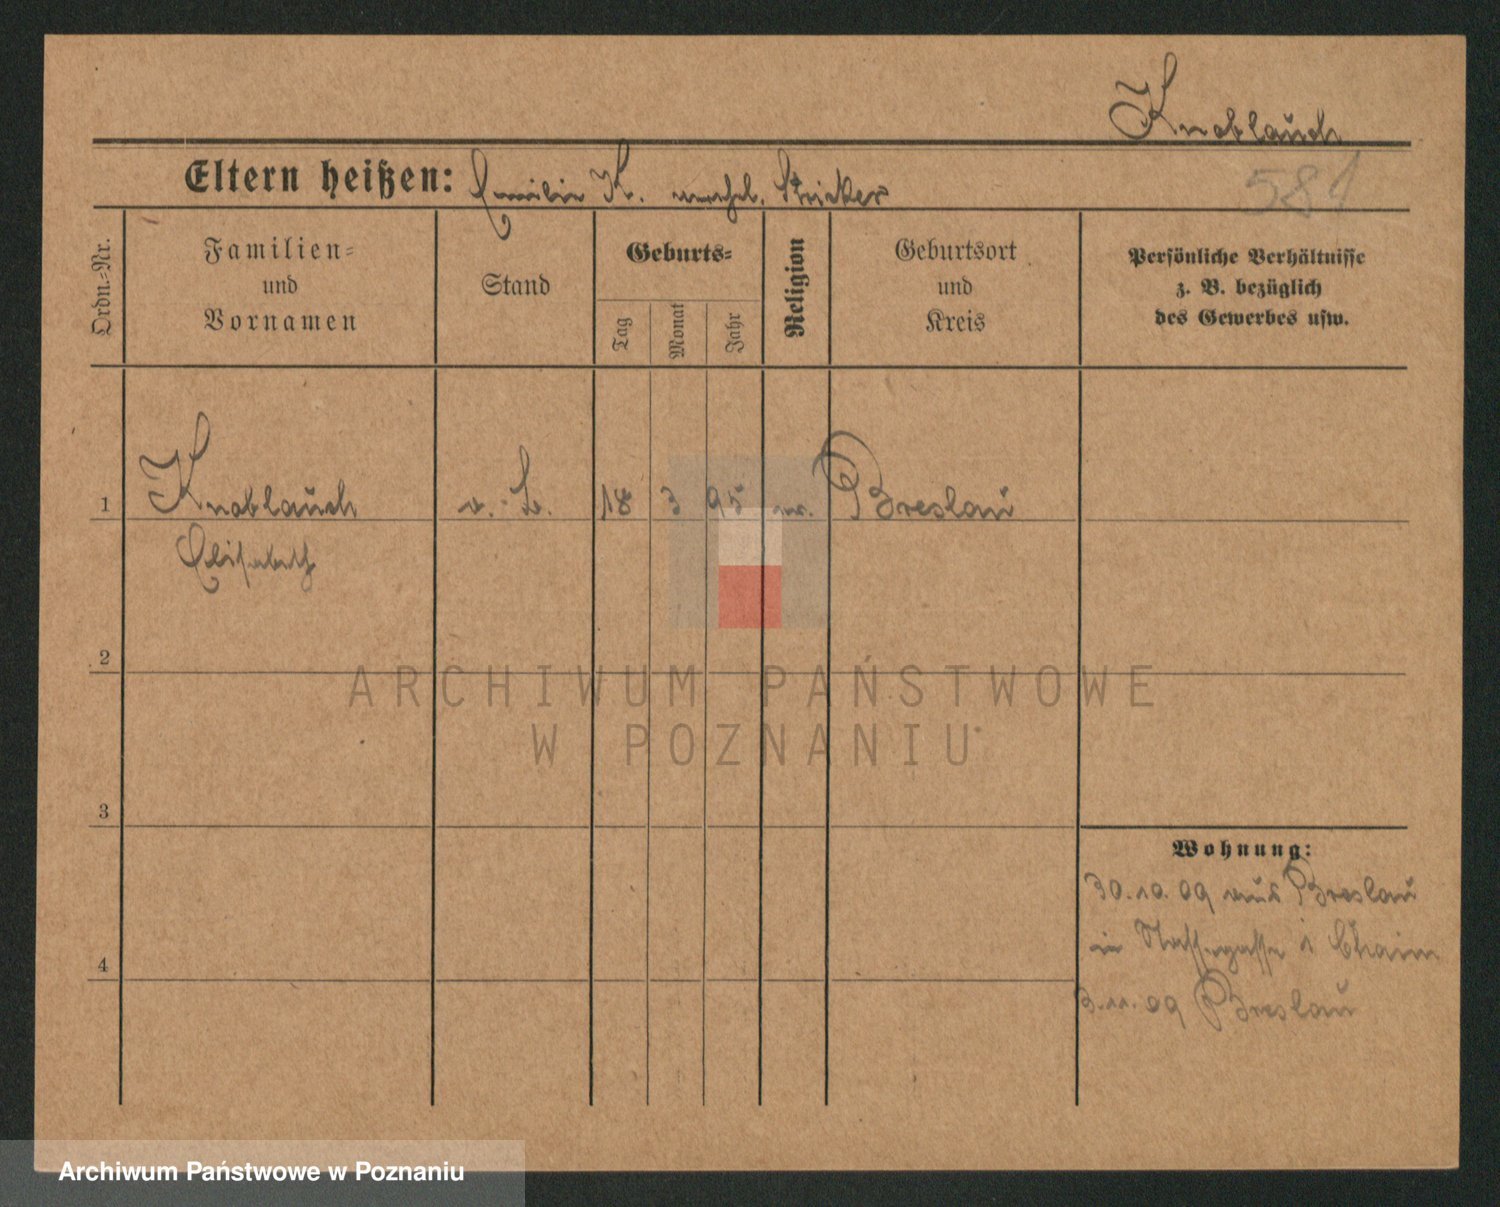 Knoblauch
Eltern heißen: Emilie K. verehel. Stricker
581
Ordn.-Nr.
Familien-
und
Vornamen
Stand
Geburts-
Tag
Monat
Jahr
Religion
Geburtsort
und
Kreis
Persönliche Verhältnisse
z. B. bezüglich
des Gewerbes usw.
1 Knoblauch 18 3 95 Breslau
Elisabeth
2
ARCHIWUM PAŃSTWOWE
W POZNANIU
3
Wohnung:
30.10.09 aus Breslau
in 1 Chaim
4
3.11.09 Breslau
Archiwum Państwowe w Poznaniu